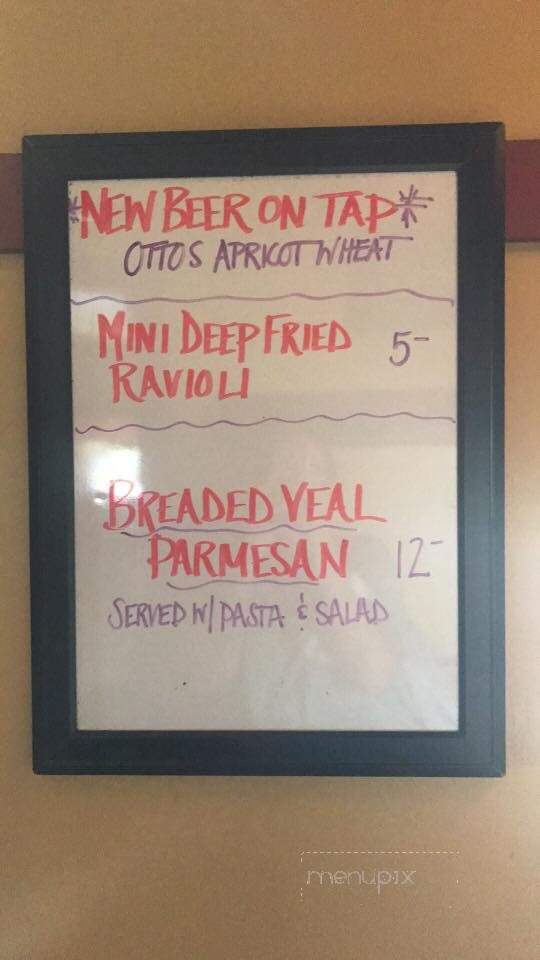 *NEW BEER ON TAP*
OTTOS APRICOT WHEAT
MINI DEEP FRIED 5-
RAVIOLI
BREADED VEAL
PARMESAN 12-
SERVED W/ PASTA & SALAD
menupix